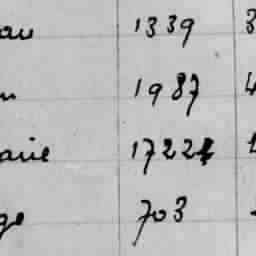 au 1339 3
n 1987 4
aire 17224 1
ge 703